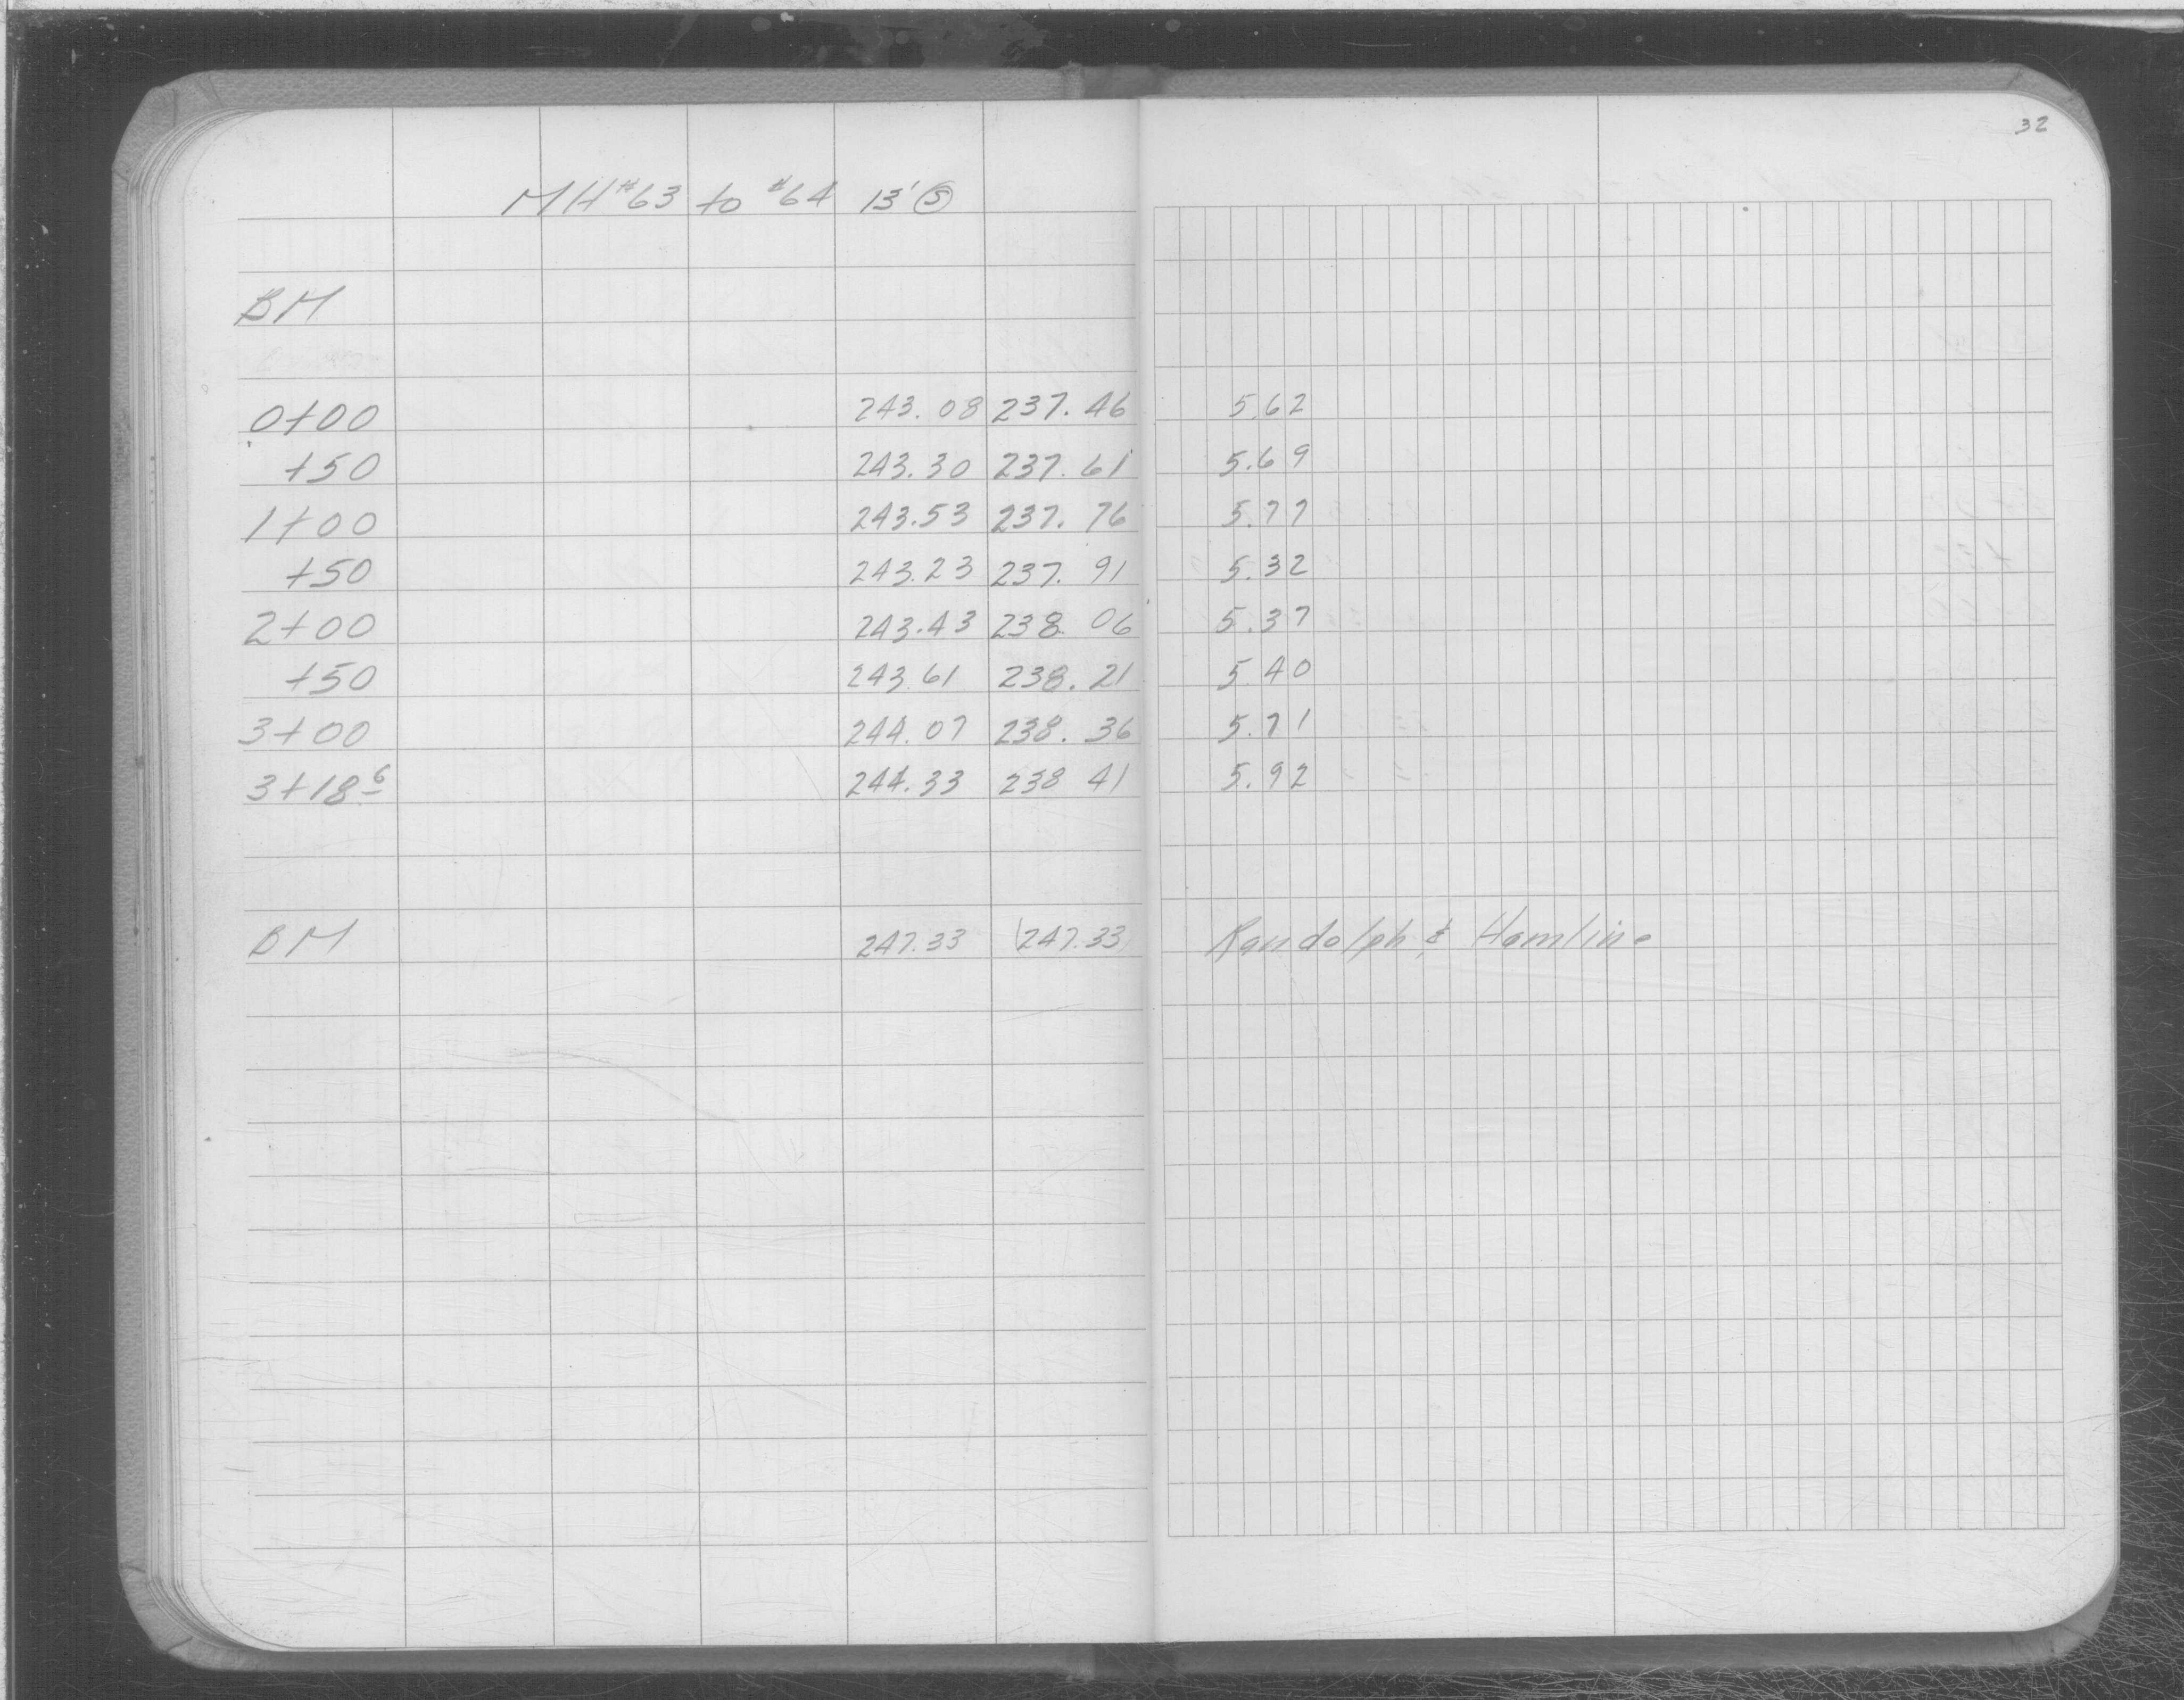 32
MH #63 to #64 13' Ⓢ
BM
0+00 243.08 237.46 5.62
+50 243.30 237.61 5.69
1+00 243.53 237.76 5.77
+50 243.23 237.91 5.32
2+00 243.43 238.06 5.37
+50 243.61 238.21 5.40
3+00 244.07 238.36 5.71
3+18⁶ 244.33 238 41 5.92
BM 247.33 247.33 Randolph & Hamline